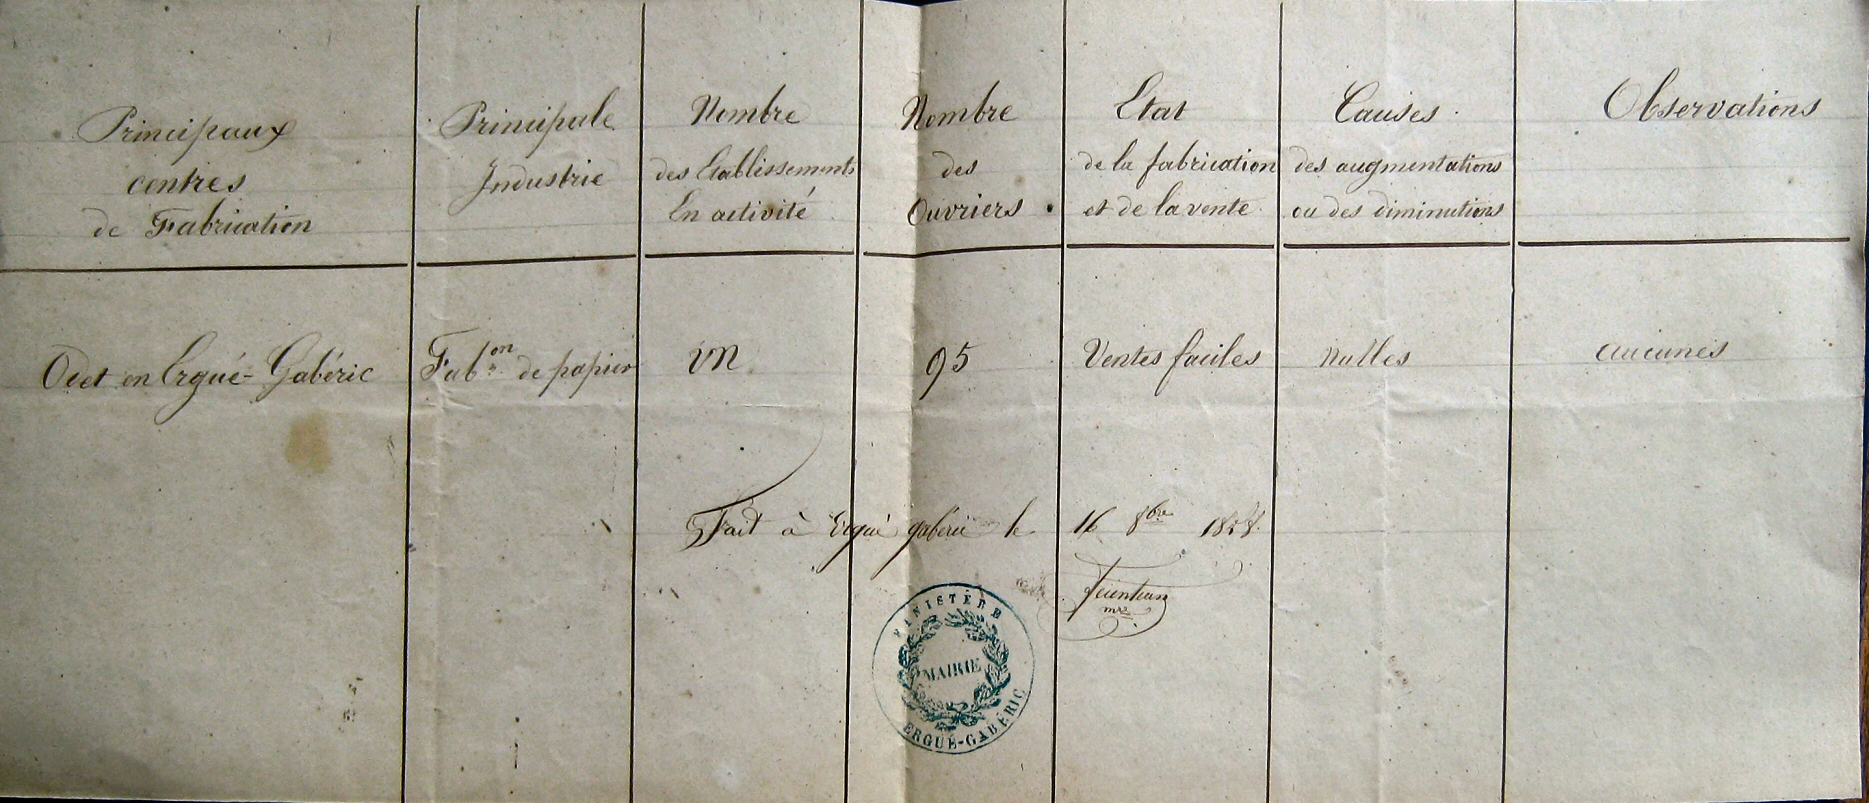 Principaux
centres
de Fabrication
Principale
Industrie
Nombre
des Etablissements
En activité
Nombre
des
Ouvriers
Etat
de la fabrication
et de la vente
Causes
des augmentations
ou des diminutions
Observations
Odet en Ergué-Gabéric
Fab.on de papier
un
95
Ventes faciles
nulles
aucunes
Fait à Ergué gabéric le 16 8bre
mre
MINISTÈRE
MAIRIE
ERGUÉ-GABÉRIC